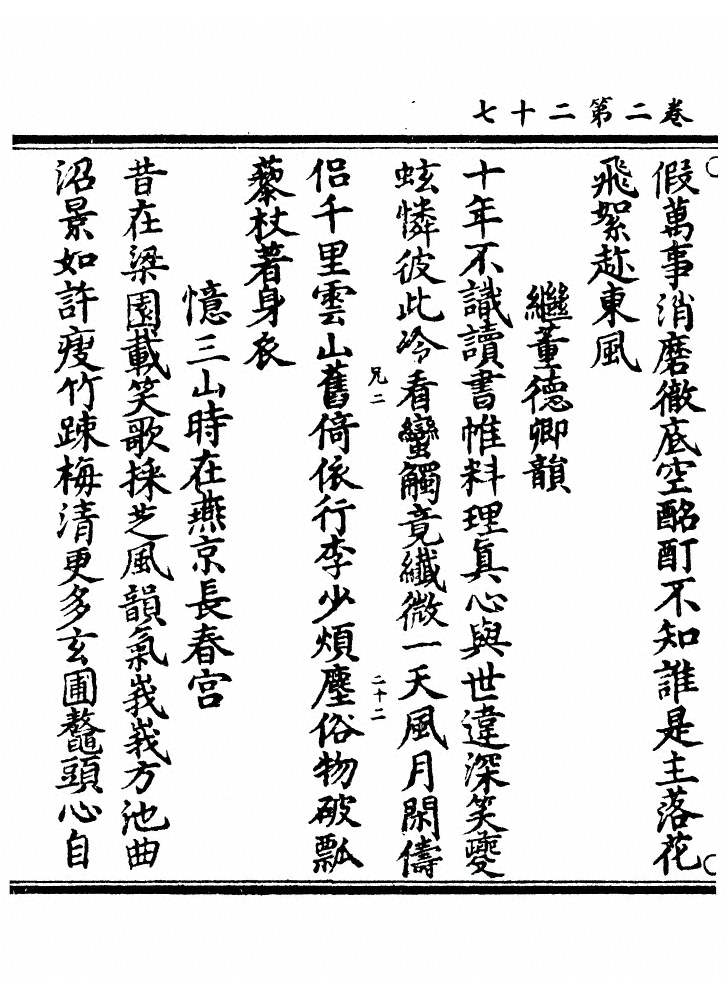 卷二第二十七
假萬事消磨徹底空酩酊不知誰是主落花
飛絮趂東風
繼董德卿韻
十年不識讀書帷料理真心與世違深笑夔
蚿憐彼此冷看蠻觸竟纖微一天風月閑儔
侶千里雲山舊倚依行李少煩塵俗物破瓢
藜杖著身衣
兄二
二十二
憶三山時在燕京長春宮
昔在梁園載笑歌採芝風韻氣峩峩方池曲
沼景如許瘦竹踈梅清更多玄圃鼇頭心自